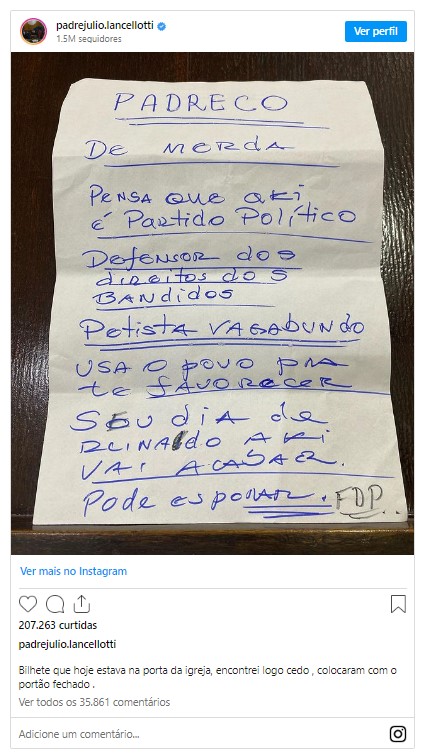 padrejulio.lancellotti
1.5M seguidores
Ver perfil
PADRECO
De merda
Pensa que aki
é Partido Político
Defensor dos
direitos dos
BANDIDOS
Petista VAGABUNDO
USA o povo pra
te favorecer
Seu dia de
reinado aki
vai acabar.
Pode esperar. FDP..
Ver mais no Instagram
207.263 curtidas
padrejulio.lancellotti
Bilhete que hoje estava na porta da igreja, encontrei logo cedo , colocaram com o
portão fechado .
Ver todos os 35.861 comentários
Adicione um comentário...